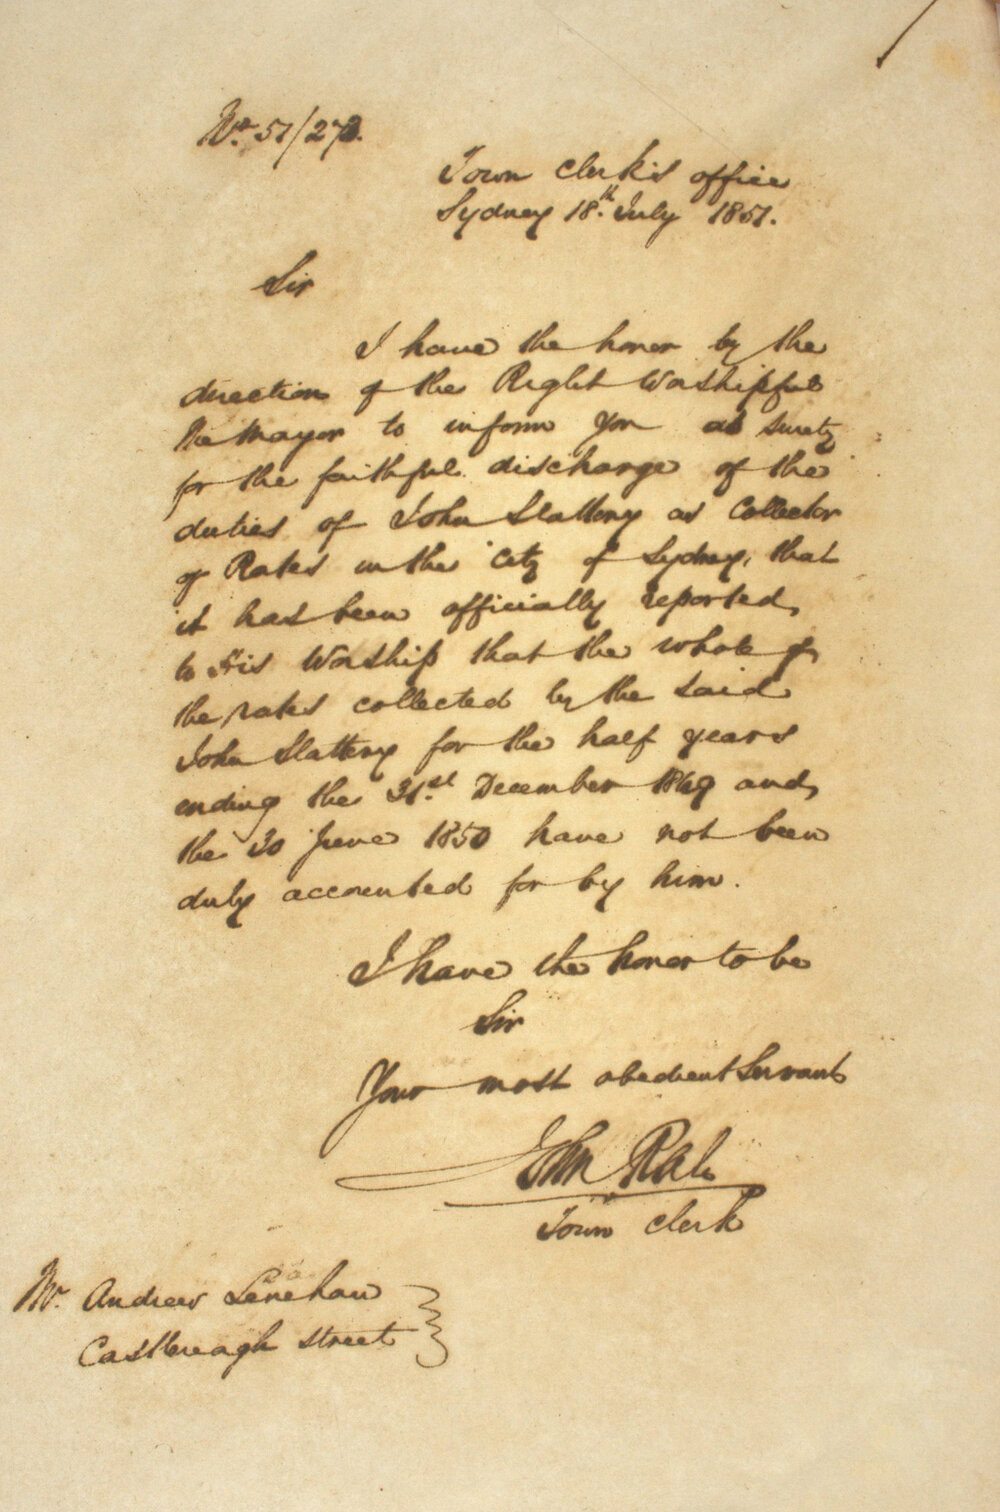 No. 51/273.
Town Clerk's office
Sydney 18th. July 1851.
Sir
I have the honor by the
direction of the Right Worshipful
the Mayor to inform you as surety
for the faithful discharge of the
duties of John Slattery as Collector
of Rates in the City of Sydney, that
it has been officially reported
to His Worship that the whole of
the rates collected by the said
John Slattery for the half years
ending the 31st. December 1849 and
the 30 June 1850 have not been
duly accounted for by him.
I have the honor to be
Sir
Your most obedient Servant
John Rae
Town Clerk
Mr. Andrew Lenehan
Castlereagh street